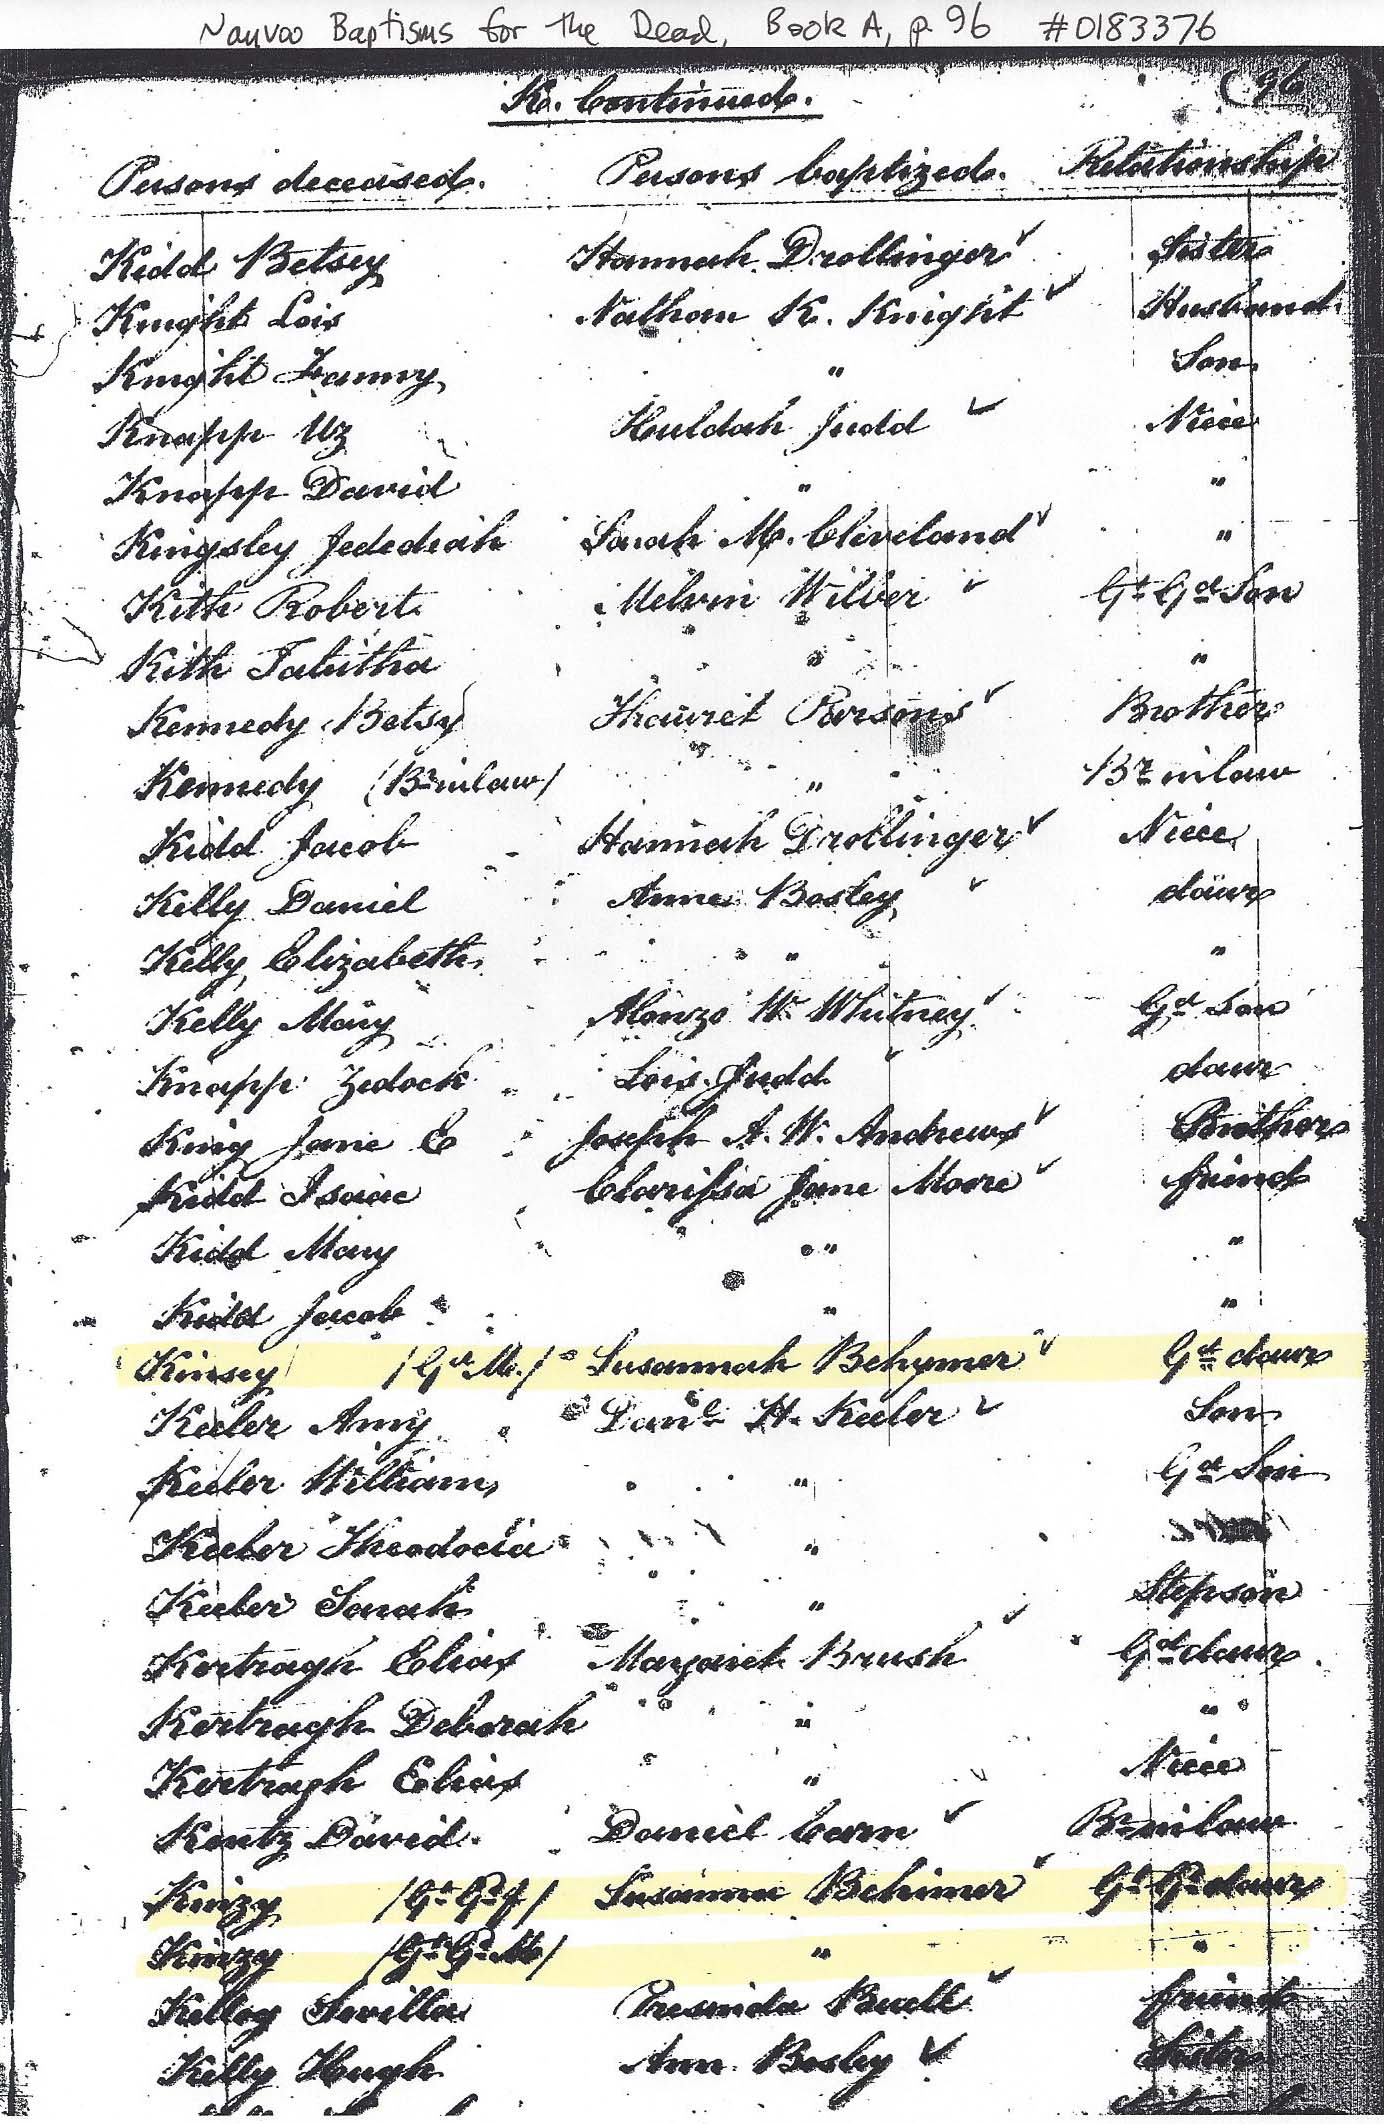 Nauvoo Baptisms for the Dead, Book A, p. 96 #0183376
96
K. Continued.
Persons deceased. Persons baptized. Relationship
Kidd Betsey Hannah Drollinger ✓ Sister
Knight Lois Nathan K. Knight ✓ Husband
Knight Fanny " Son
Knapp Uz Huldah Judd ✓ Niece
Knapp David " "
Kingsley Jedediah Sarah M. Cleveland ✓ "
Kith Robert Melvin Wilber ✓ Gt Gd Son
Kith Tabitha " "
Kennedy Betsy Thauret Parsons ✓ Brother
Kennedy (Br inlaw) " Br inlaw
Kidd Jacob Hannah Drollinger ✓ Niece
Kelly Daniel Anne Bosley ✓ daur
Kelly Elizabeth " "
Kelly Mary Alonzo W. Whitney ✓ Gd Son
Knapp Zedock Lois Judd ✓ daur
King Jane E Joseph A. W. Andrews ✓ Brother
Kidd Isaac Clarissa Jane Moore ✓ friend
Kidd Mary " "
Kidd Jacob " "
Kinsey (Gd M.) Susannah Behymer ✓ Gd daur
Keeler Amy Danl H. Keeler ✓ Son
Keeler William " Gd Son
Keeler Theodocia "
Keeler Sarah " Stepson
Kortragh Elias Margaret Brush ✓ Gd daur
Kortragh Deborah " "
Kortragh Elias " Niece
Kentz David. Daniel Carn ✓ Br inlaw
Kinzy (Gt Gd f) Susanna Behimer ✓ Gt Gd daur
Kinzy (Gt Gd M) " "
Kellog Sevilla Presinda Buell ✓ friend
Kelly Hugh Ann Bosley ✓ Sister